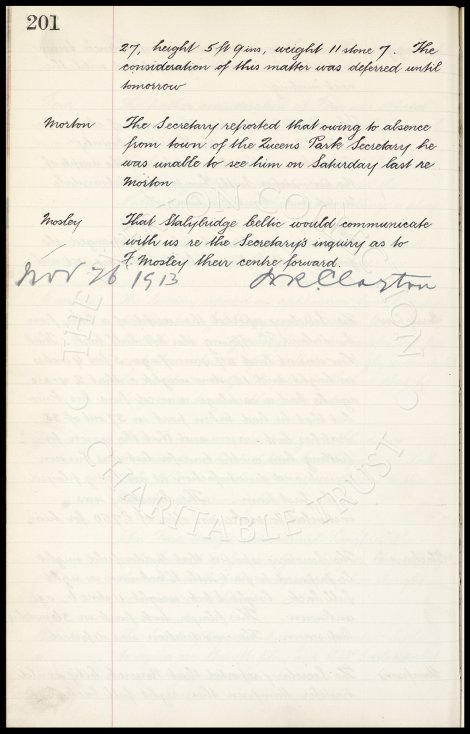 201
27, height 5 ft 9 ins, weight 11 stone 7. The
consideration of this matter was deferred until
tomorrow
Morton The Secretary reported that owing to absence
from town of the Queens Park Secretary he
was unable to see him on Saturday last re
Morton
Mosley That Stalybridge Celtic would communicate
with us re the Secretary's inquiry as to
F. Mosley their centre forward.
Nov 26 1913 W R Clayton
THE
CHARITABLE TRUST